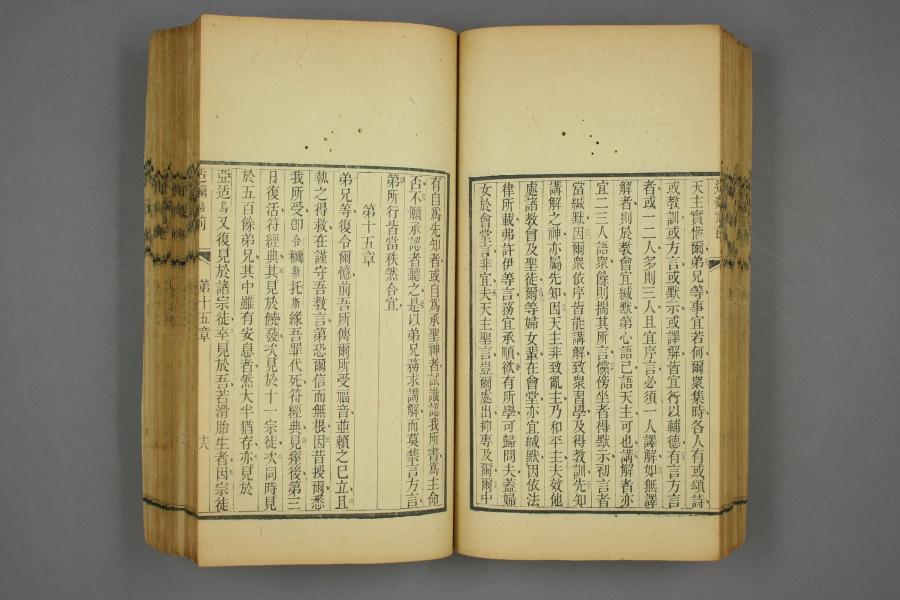 天主實偕爾弟兄等事宜若何爾衆集時各人有或頌詩
或教訓或方言或默示或譯解皆宜行以輔德有言方言
者或一二人多則三人且宜序言必須一人譯解如無譯
解者則於教會宜緘默弟心語己語天主可也講解者亦
宜二三人語衆餘則揣其所言儻傍坐者得默示初言者
當緘默因爾衆依序皆能講解致衆習學及得教訓先知
講解之神亦屬先知因天主非致亂主乃和平主夫效他
處諸教會及聖徒爾等婦女輩在會堂亦宜緘默因依法
律所載弗許伊等言務宜承順欲有所學可歸問夫蓋婦
女於會堂言非宜夫天主聖言豈爾處出抑專及爾爾中
有自爲先知者或自爲承聖神者試識認我所書爲主命
否不願承認者聽之是以弟兄務求講解而莫禁言方言
第所行皆當秩然合宜
第十五章
弟兄等復令爾憶前吾所傳爾所受福音並賴之已立且
執之得救在謹守吾教言第恐爾信而無根因昔授爾悉
我所受卽令穪斯托斯緣吾罪代死符經典見瘞後第三
日復活符經典其見於磯發次見於十一宗徒次同時見
於五百餘弟兄其中雖有安息者然大半猶存亦見於
亞适烏又復見於諸宗徒卒見於吾若滑胎生者因宗徒
第十五章